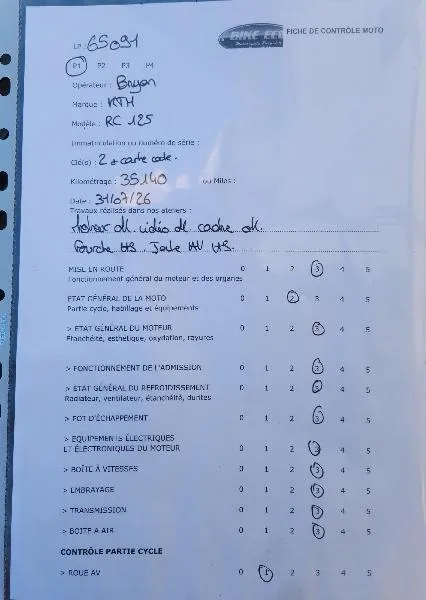 BIKE ECO FICHE DE CONTRÔLE MOTO
LP 65091
P1 P2 P3 P4
Opérateur : Bryan
Marque : KTM
Modèle : RC 125
Immatriculation ou numéro de série :
Clé(s) : 2 + carte code.
Kilométrage : 35140 ou Miles :
Date : 31/07/26
Travaux réalisés dans nos ateliers :
moteur ok. vidéo ok. cadre ok.
Fourche HS. Jante AV HS.
MISE EN ROUTE 0 1 2 3 4 5
Fonctionnement général du moteur et des organes
ETAT GÉNÉRAL DE LA MOTO 0 1 2 3 4 5
Partie cycle, habillage et équipements
> ETAT GÉNÉRAL DU MOTEUR 0 1 2 3 4 5
Etanchéité, esthétique, oxydation, rayures
> FONCTIONNEMENT DE L'ADMISSION 0 1 2 3 4 5
> ETAT GÉNÉRAL DU REFROIDISSEMENT 0 1 2 3 4 5
Radiateur, ventilateur, étanchéité, durites
> POT D'ÉCHAPPEMENT 0 1 2 3 4 5
> EQUIPEMENTS ÉLECTRIQUES
ET ÉLECTRONIQUES DU MOTEUR 0 1 2 3 4 5
> BOÎTE À VITESSES 0 1 2 3 4 5
> EMBRAYAGE 0 1 2 3 4 5
> TRANSMISSION 0 1 2 3 4 5
> BOITE A AIR 0 1 2 3 4 5
CONTRÔLE PARTIE CYCLE
> ROUE AV 0 1 2 3 4 5